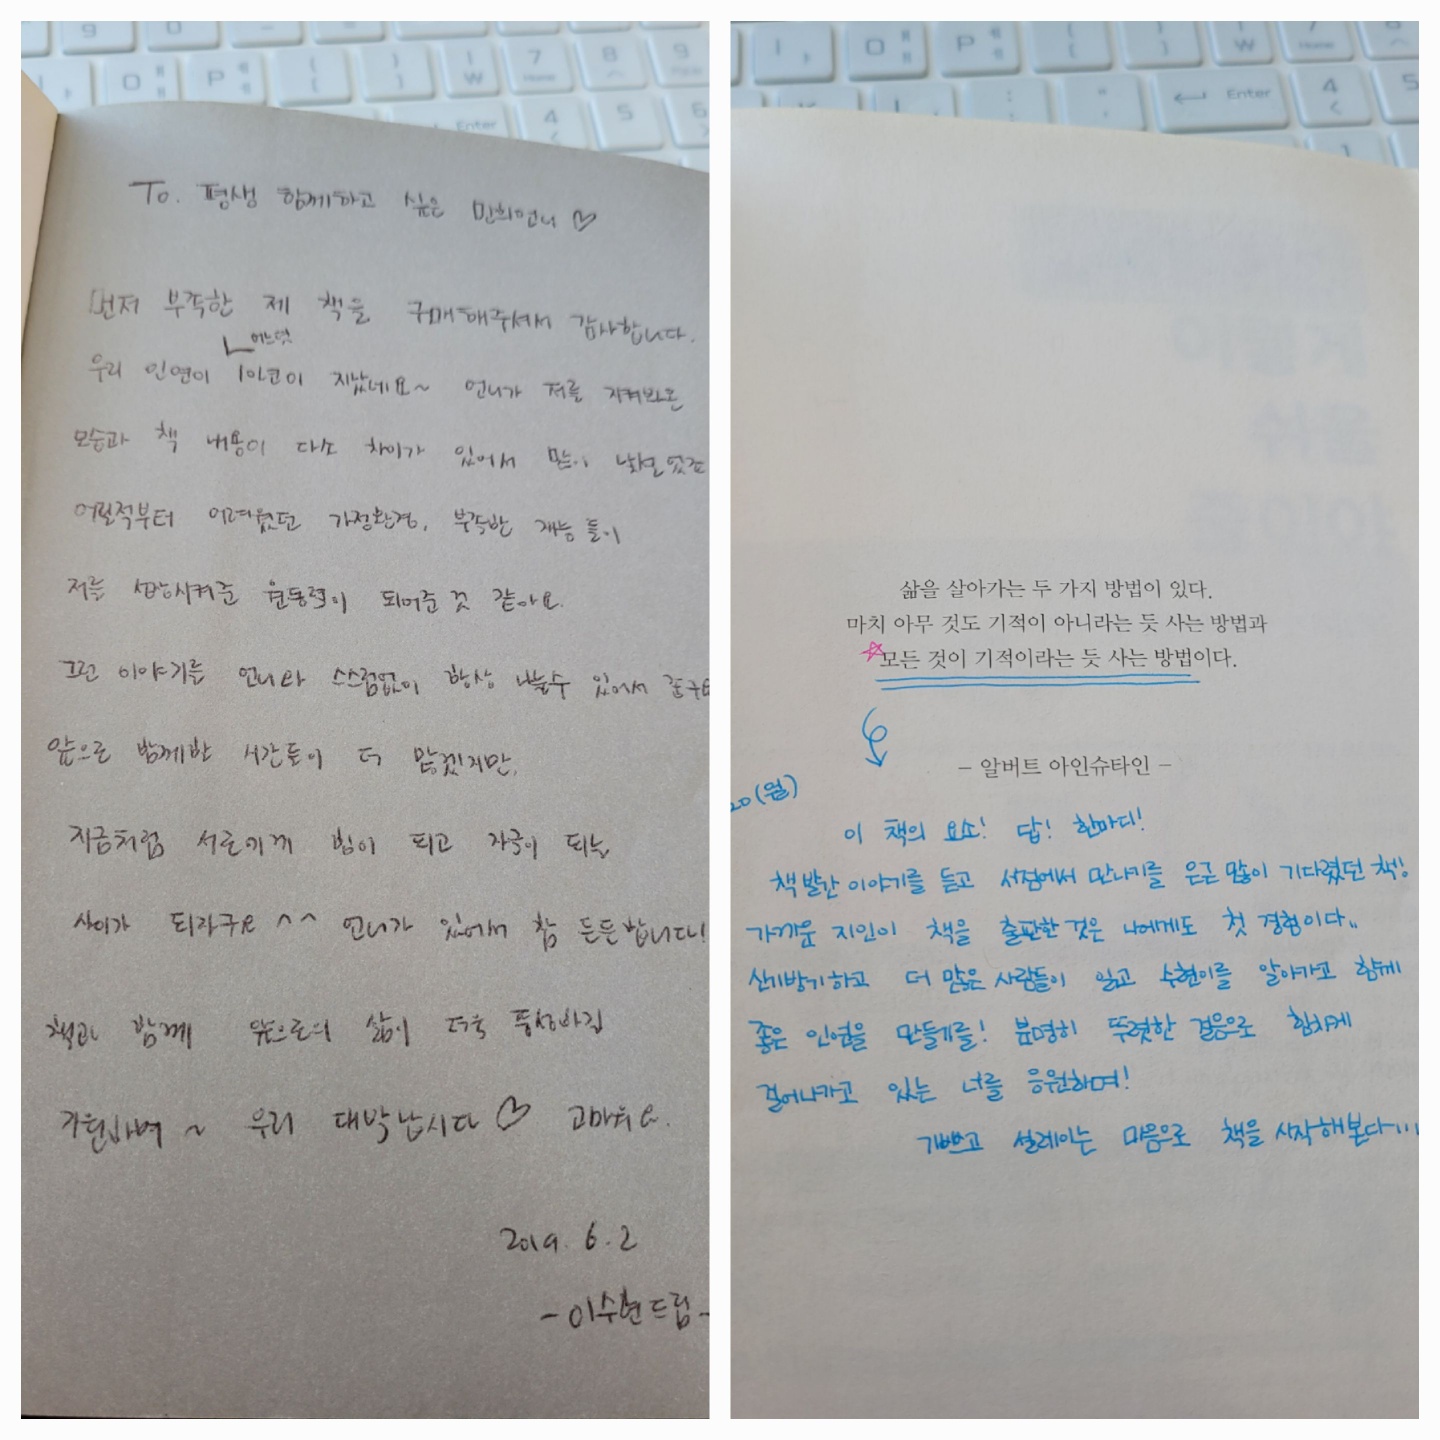 To. 평생 함께하고 싶은 만희언니♡
먼저 부족한 제 책을 구매해주셔서 감사합니다.
어느덧
우리 인연이 1아코이 지났네요~ 언니가 저를 지켜봐온
모습과 책 내용이 다소 차이가 있어서 많이 놀라셨죠
어릴적부터 어려웠던 가정환경, 부족한 재능들이
저를 성장시켜준 원동력이 되어준 것 같아요.
그런 이야기를 언니와 스스럼없이 항상 나눌수 있어서
앞으로 함께할 시간들이 더 많겠지만,
지금처럼 서로에게 힘이 되고 자극이 되는
사이가 되자구요 ^^ 언니가 있어서 참 든든합니다!
책과 함께 앞으로의 삶이 더욱 풍성해짐
기원하며 ~ 우리 대박납시다♡ 고마워요.
2019. 6. 2
-이수현드림-
삶을 살아가는 두 가지 방법이 있다.
마치 아무 것도 기적이 아니라는 듯 사는 방법과
☆모든 것이 기적이라는 듯 사는 방법이다.
– 알버트 아인슈타인 –
20(월)
이 책의 요소! 답! 한마디!
책발간 이야기를 듣고 서점에서 만나기를 은근 많이 기다렸던 책!
가까운 지인이 책을 출판한 것은 나에게도 첫 경험이다..
신기방기하고 더 많은 사람들이 읽고 수현이를 알아가고 함께
좋은 인연을 만들기를! 분명히 뚜렷한 걸음으로 힘차게
걸어나가고 있는 너를 응원하며!
기쁘고 설레이는 마음으로 책을 시작해본다...